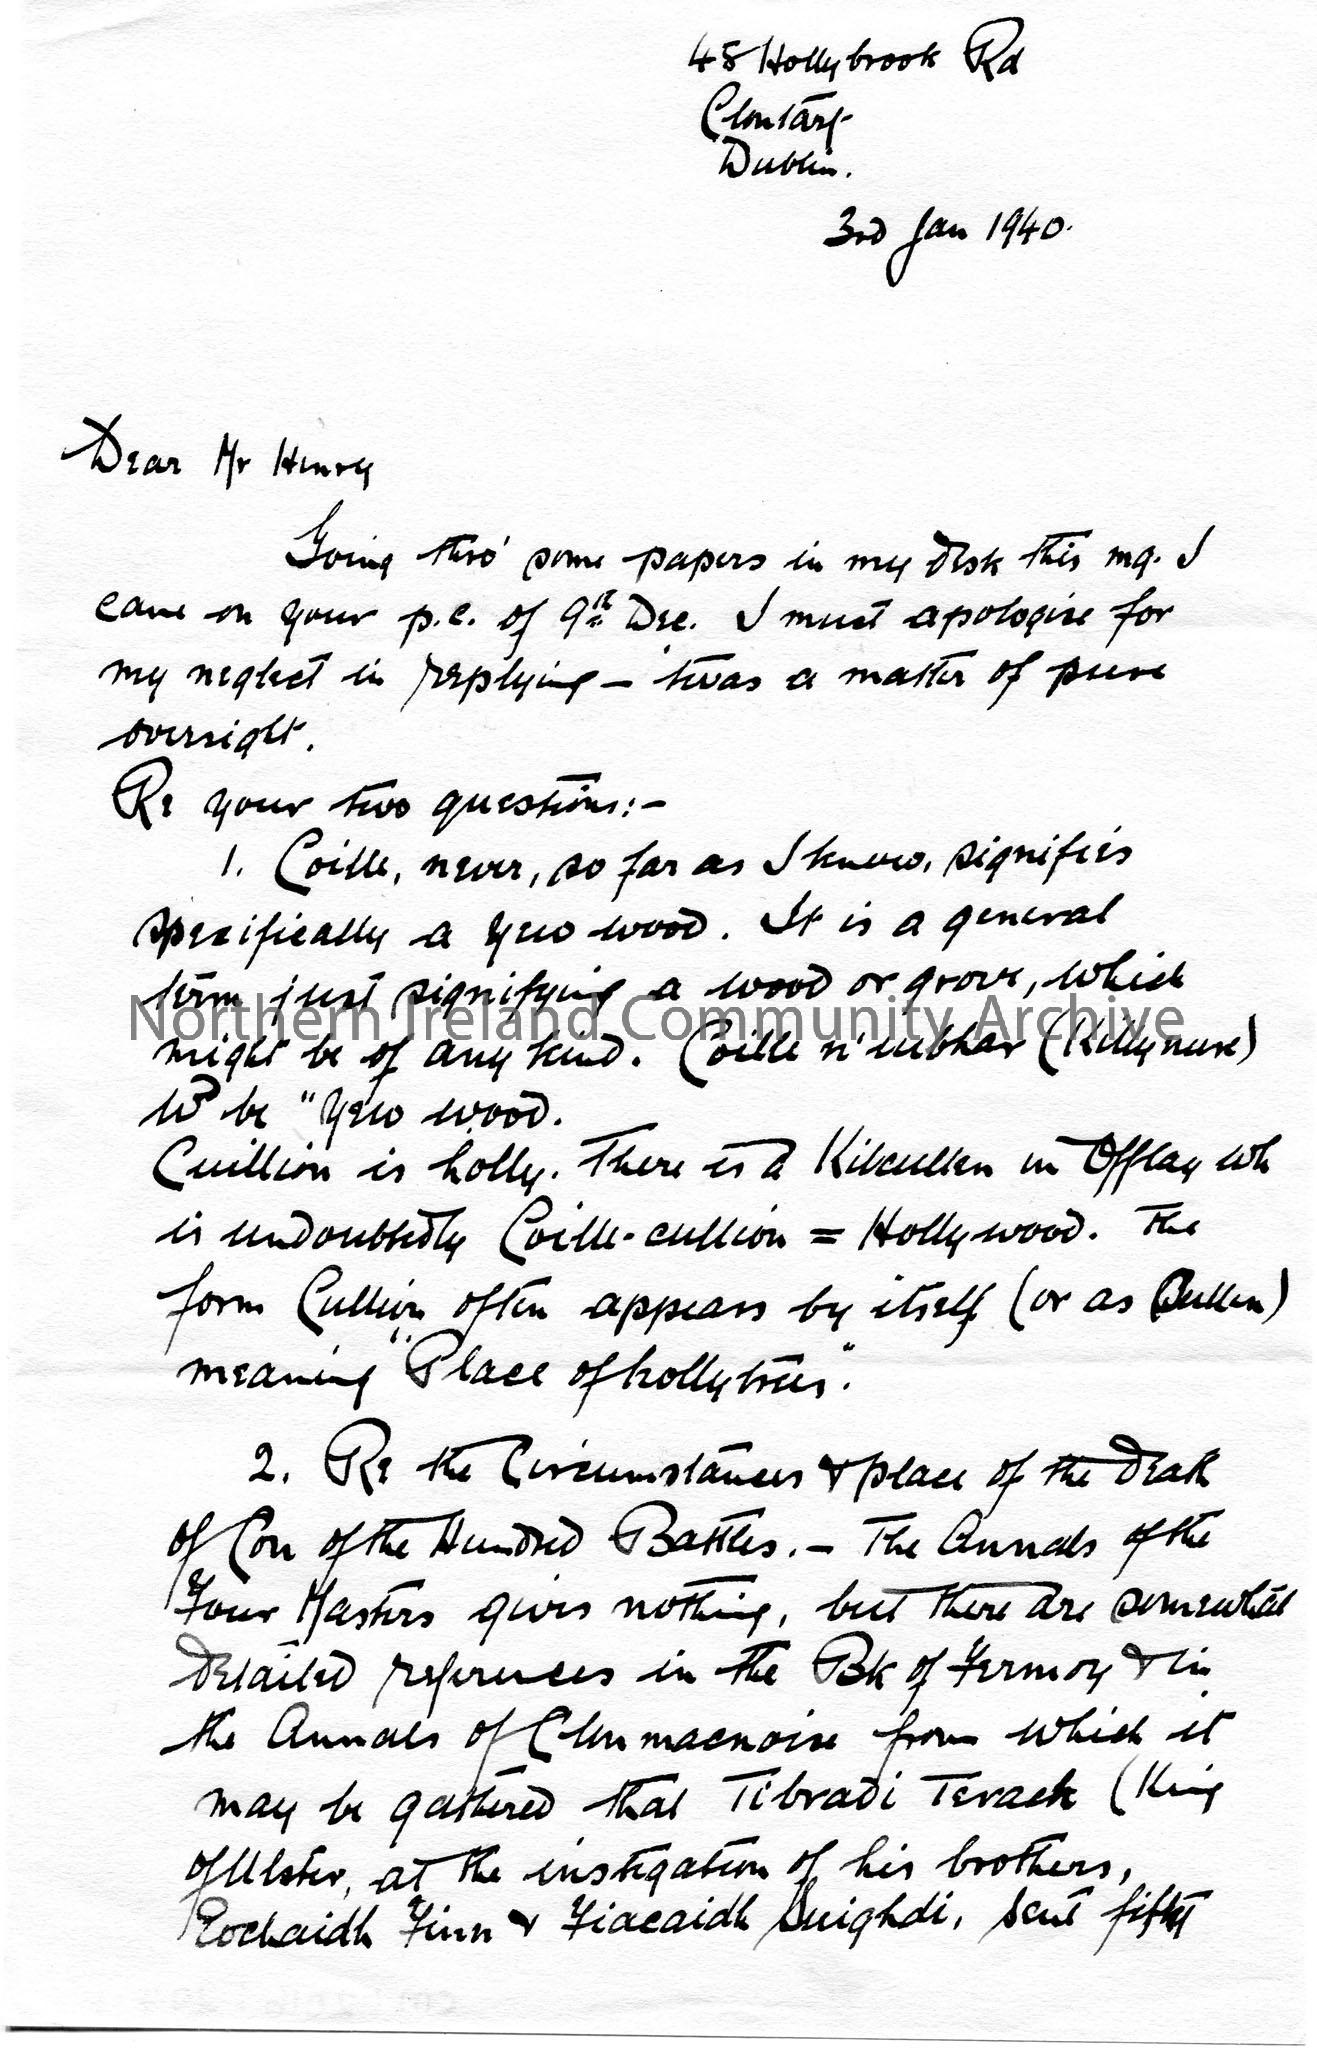 48 Hollybrook Rd
Clontarf
Dublin.
3rd Jan 1940.
Dear Mr Henry
Going thro' some papers in my desk this mg. I
came on your p.c. of 9th Dec. I must apologise for
my neglect in replying – 'twas a matter of pure
oversight.
Re your two questions:-
1. Coille, never, so far as I know, signifies
specifically a yew wood. It is a general
term just signifying a wood or grove, which
Northern Ireland Community Archive
might be of any kind. Coille n'iubhar (Killynure)
wd be "Yew wood.
Cuillion is holly. There is a Kilcullen in Offlay wh
is undoubtedly Coille-cullion = Hollywood. The
form Cullion often appears by itself (or as Cullen)
meaning "Place of holly trees".
2. Re the Circumstances & place of the death
of Con of the Hundred Battles. – The Annals of the
Four Masters gives nothing, but there are somewhat
detailed references in the Bk of Fermoy & in
the Annals of Clonmacnoise from which it
may be gathered that Tibradi Terach (King
of Ulster, at the instigation of his brothers,
Eochaidh Finn & Fiacaidh Suighdi, sent fifty